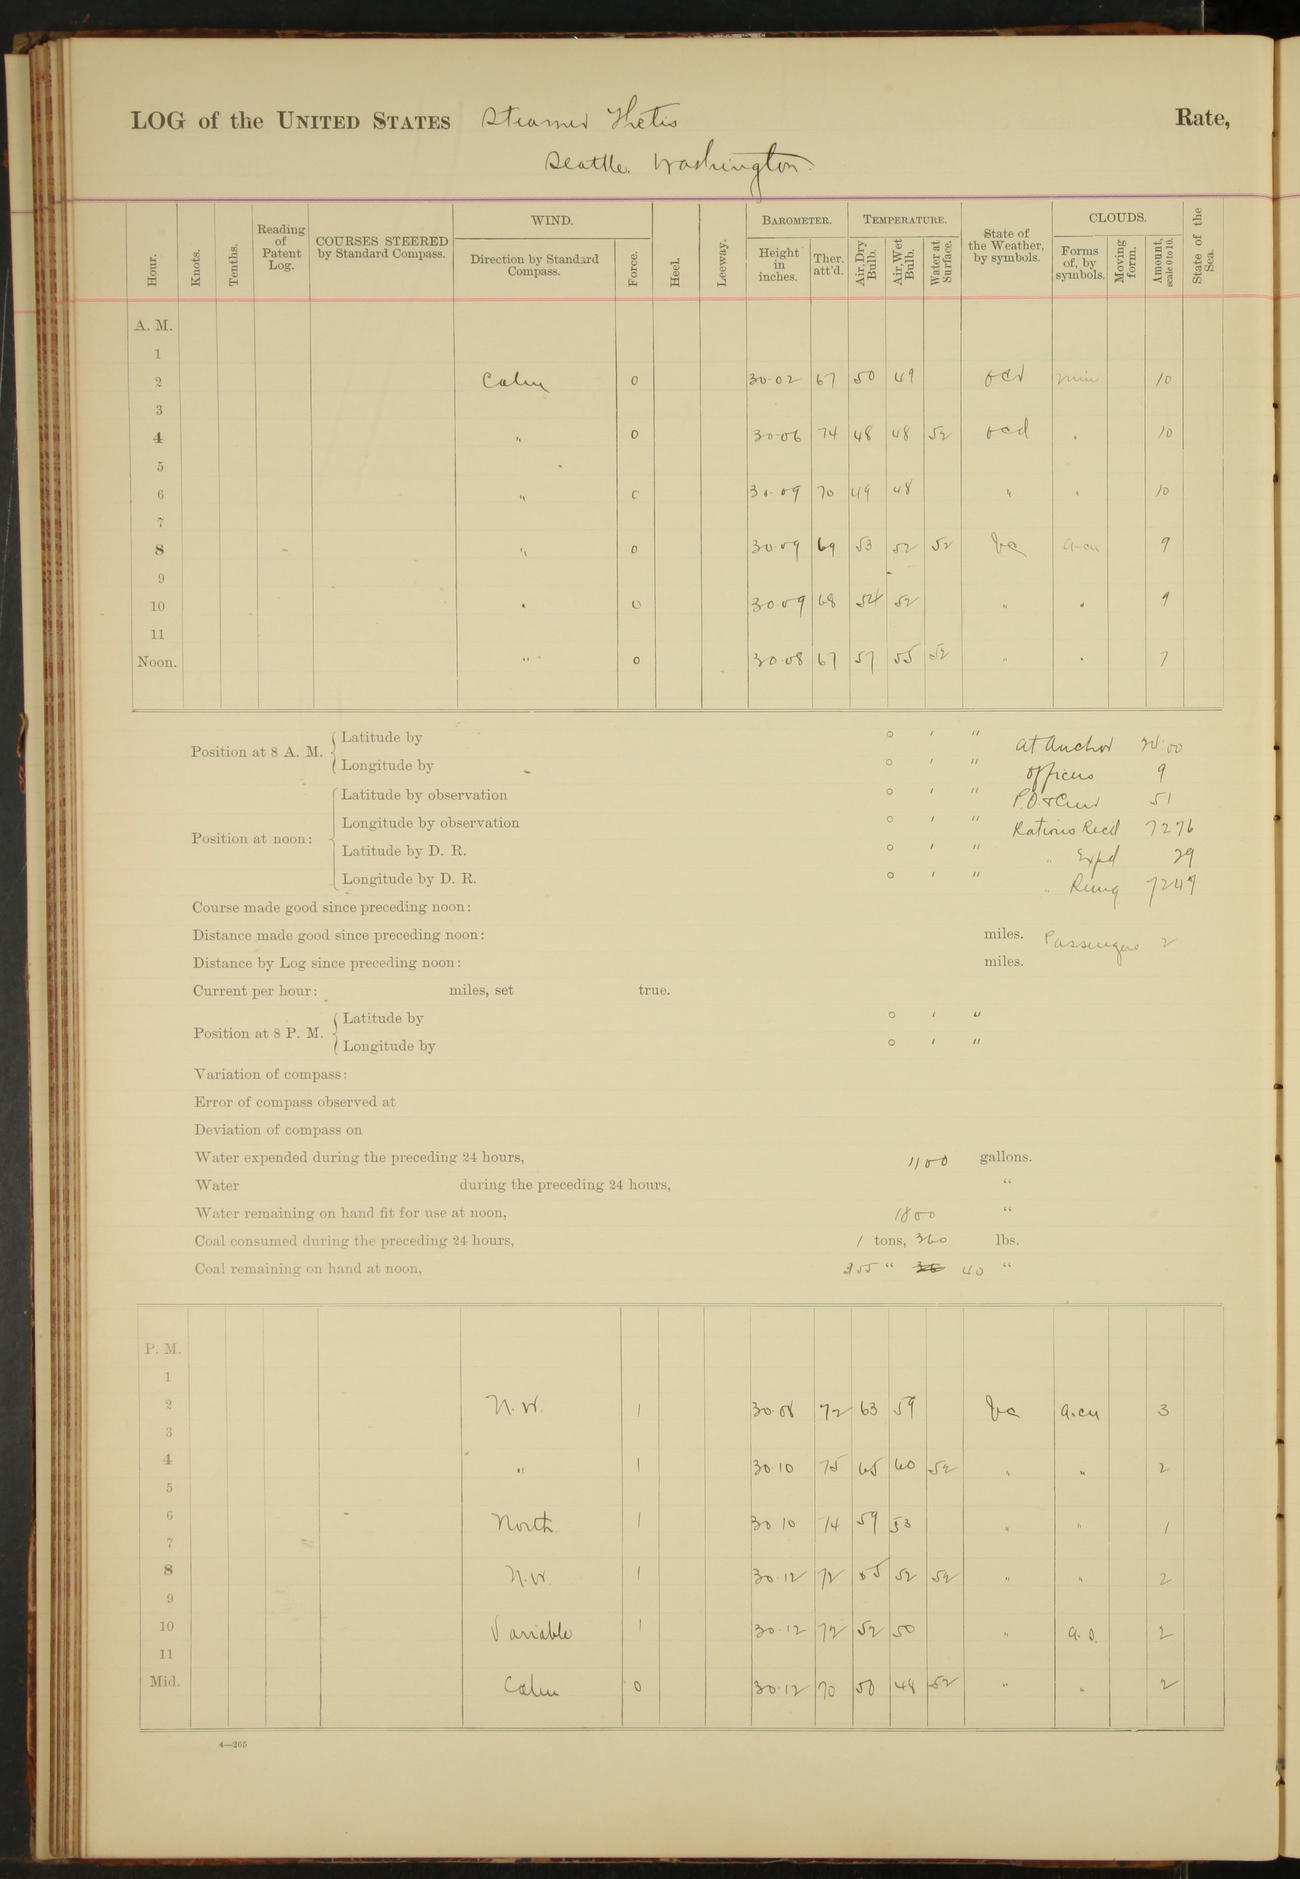 LOG of the UNITED STATES Steamer Thetis Rate,
Seattle. Washington.
Hour. Knots. Tenths. Reading of Patent Log. COURSES STEERED by Standard Compass. WIND. Direction by Standard Compass. Force. Heel. Leeway. BAROMETER. Height in inches. Ther. att'd. TEMPERATURE. Air, Dry Bulb. Air, Wet Bulb. Water at Surface. State of the Weather, by symbols. CLOUDS. Forms of, by symbols. Moving form. Amount, scale 0 to 10. State of the Sea.
A. M.
1
2 Calm 0 30.02 67 50 49 10
3
4 " 0 30.06 74 48 48 52 ocd " 10
5
6 " 0 30.09 70 49 48 " " 10
7
8 " 0 30.09 69 53 52 52 bc a-cu 9
9
10 " 0 30.09 68 54 52 " " 9
11
Noon. " 0 30.08 67 57 55 52 " " 7
Position at 8 A. M. Latitude by ° ′ ″ At Anchor 24.00
Longitude by ° ′ ″ Officers 9
Position at noon: Latitude by observation ° ′ ″ P.O. & Crew 51
Longitude by observation ° ′ ″ Rations Recd 7276
Latitude by D. R. ° ′ ″ " Expd 29
Longitude by D. R. ° ′ ″ " Remg 7247
Course made good since preceding noon:
Distance made good since preceding noon: miles. Passengers 2
Distance by Log since preceding noon: miles.
Current per hour: miles, set true.
Position at 8 P. M. Latitude by ° ′ ″
Longitude by ° ′ ″
Variation of compass:
Error of compass observed at
Deviation of compass on
Water expended during the preceding 24 hours, 1100 gallons.
Water during the preceding 24 hours, "
Water remaining on hand fit for use at noon, 1800 "
Coal consumed during the preceding 24 hours, 1 tons, 360 lbs.
Coal remaining on hand at noon, " 40 "
P. M.
1
2 N.W. 1 30.08 72 63 59 bc a.cu 3
3
4 " 1 30.10 75 65 60 52 " " 2
5
6 North. 1 30.10 74 59 53 " " 1
7
8 N.W. 1 30.12 72 55 52 52 " " 2
9
10 Variable 1 30.12 72 52 50 " 2
11
Mid. Calm 0 30.12 70 50 48 52 " " 2
4—265